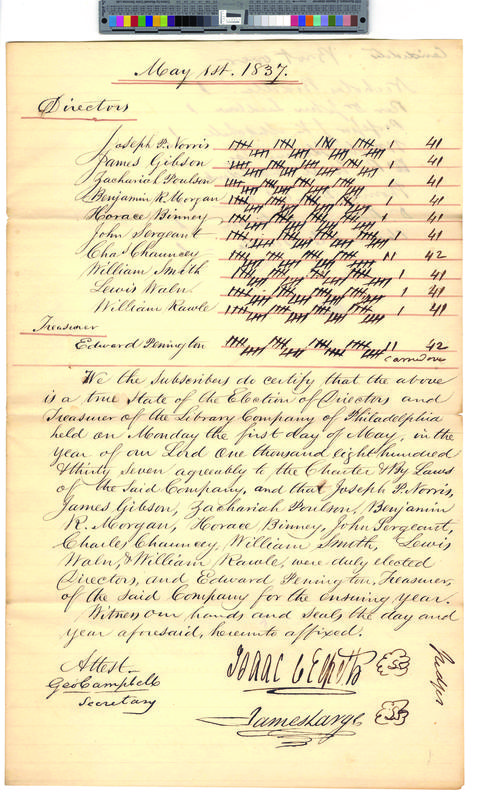 May 1st. 1837.
Directors
Joseph P. Norris 41
James Gibson 41
Zachariah Poulson 41
Benjamin R. Morgan 41
Horace Binney 41
John Sergeant 41
Chas Chauncey 42
William Smith 41
Lewis Waln 41
William Rawle 41
Treasurer
Edward Penington 42
carried over
We the Subscribers do certify that the above
is a true State of the Election of Directors and
Treasurer of the Library Company of Philadelphia
held on Monday the first day of May, in the
year of our Lord One thousand eight hundred
& thirty seven agreeably to the Charter & By Laws
of the said Company, and that Joseph P. Norris,
James Gibson, Zachariah Poulson, Benjamin
R. Morgan, Horace Binney, John Sergeant,
Charles Chauncey, William Smith, Lewis
Waln, & William Rawle, were duly elected
Directors, and Edward Penington, Treasurer,
of the said Company for the ensuing year.
Witness our hands and seals the day and
year aforesaid, hereunto affixed.
Attest.
Geo Campbell
Secretary
Isaac
James Large
Judges